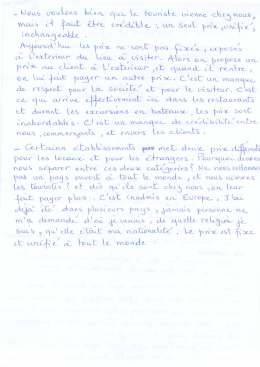 - Nous voulons bien que le touriste vienne chez nous,
mais il faut être crédible : un seul prix, unifié,
inchangeable.
Aujourd'hui les prix ne sont pas fixés, exposés
à l'extérieur du lieu à visiter. Alors on propose un
prix au client à l'extérieur, et quand il rentre,
on lui fait payer un autre prix. C'est un manque
de respect pour la société et pour le visiteur. C'est
ce qui arrive effectivement ici dans les restaurants
et durant les excursions en bateaux. Les prix sont
inabordables. C'est un manque de crédibilité entre
nous, commerçants, et envers les clients.
- Certains établissements met deux prix différents
pour les locaux et pour les étrangers. Pourquoi devons
nous séparer entre ces deux catégories? Ne nous
pas un pays ouvert à tout le monde, et nous aimons
les touristes! et dès qu'ils sont chez nous, on leur
fait payer plus. C'est inadmis en Europe. J'ai
déjà été dans plusieurs pays, jamais personne ne
m'a demandé d'où je venais, de quelle religion je
suis, qu'elle était ma nationalité. Le prix est fixe
et unifié à tout le monde.